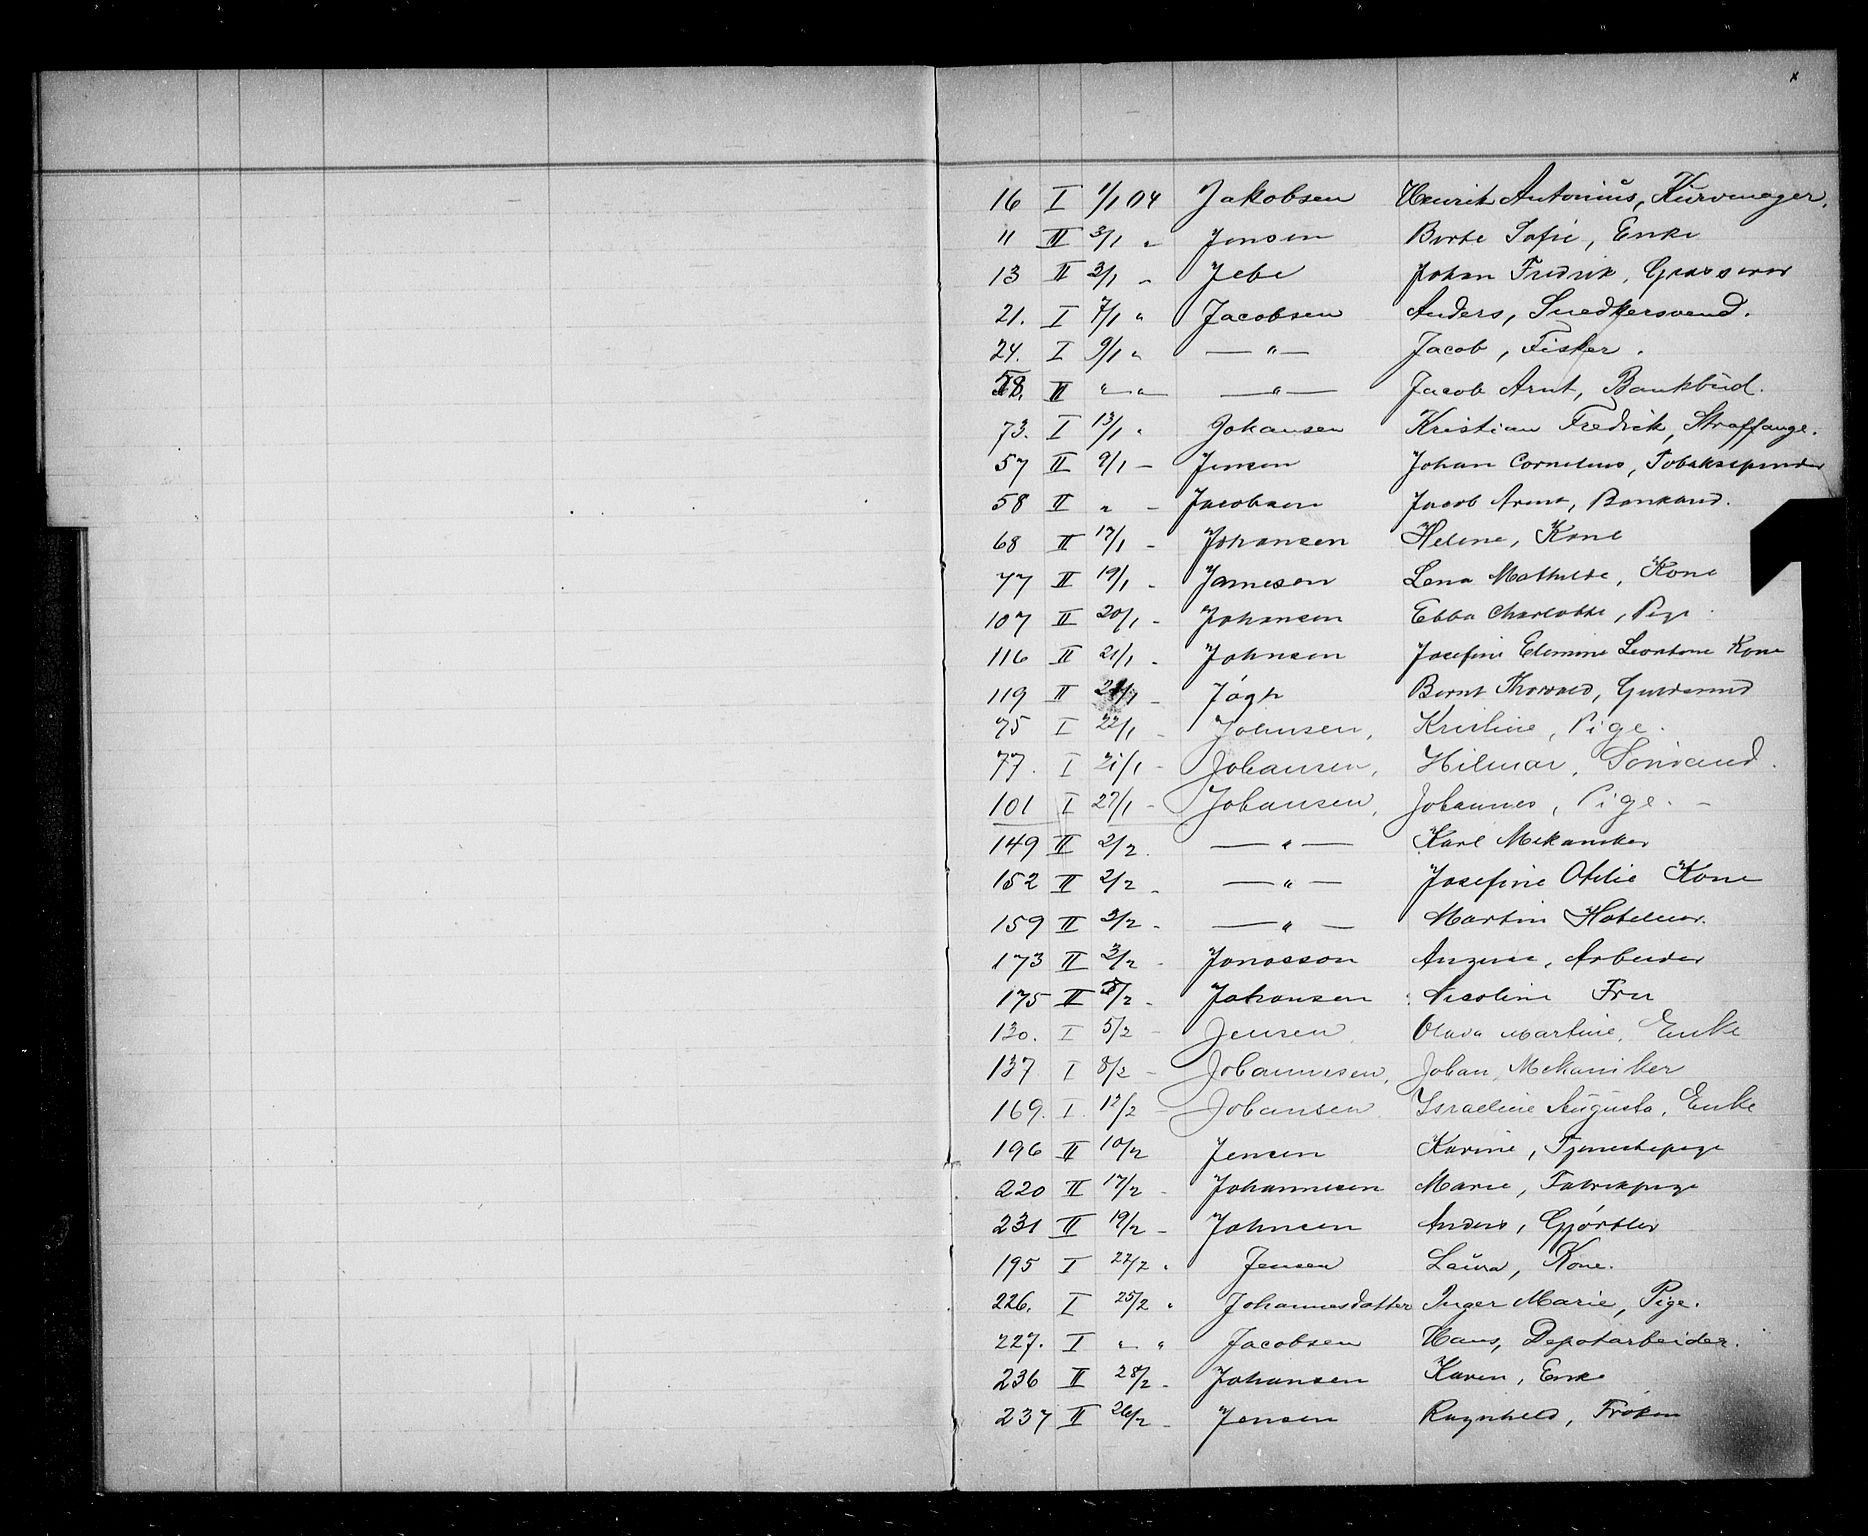 16 I 1/1 04 Jakobsen Henrik Antonius, Kurvmager.
11 II 3/1 " Jensen Berte Sofie, Enke
13 II 3/1 " Jebe Johan Fredrik, Grosserer
21. I 7/1 " Jacobsen Anders, Snedkersvend.
24. I 9/1 " — " — Jacob, Fisker.
58. II " " — " — Jacob Arnt, Bankbud.
73. I 13/1 " Johansen Kristian Fredrik, Straffange.
57 II 9/1 — Jensen Johan Cornelius, Tobakspinder
58 II " — Jacobsen Jacob Arent, Bankbud.
68 II 17/1 — Johansen Helene, Kone
77 II 19/1 — Jamesen Lena Mathilde, Kone
107 II 20/1 — Johansen Ebba Charlotte, Pige
116 II 21/1 — Johnsen Josefine Elemine Leontine Kone
119 II 21/1 — Jágh Bernt Thorvald,
75 I 22/1 — Johnsen, Kristine, Pige.
77. I 21/1 — Johansen, Hilmar,
101 I 27/1 — Johansen, Johannes, Pige. —
149 II 2/2. — " — Karl Mekaniker
152 II 2/2 — — " — Josefine Otilie Kone
159 II 3/2 — — " — Martin
173 II 3/2 — Jonasson Arbeider
175 II 8/2 — Johansen Nicoline Fru
130. I 5/2 — Jensen. Olava Martine, Enke
137 I 8/2 — Johannesen, Johan, Mekaniker
169. I 12/2 — Johansen Israeline Augusta, Enke
196 II 10/2 Jensen Karine, Tjenestepige
220 II 17/2 — Johannesen Marie, Fabrikpige
231 II 19/2 — Johnsen Anders, Gjørtler
195 I 22/2 " Jensen Laura, Kone.
226. I 25/2 " Johannesdatter Inger Marie, Pige.
227. I " " Jacobsen Hans, Depotarbeider.
236 II 28/2 — Johansen Karen, Enke
237 II 26/2 — Jensen Ragnhild, Frøken